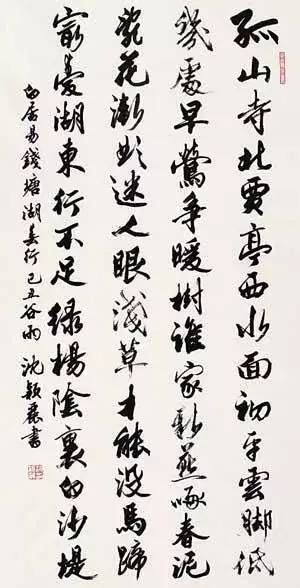 孤山寺北賈亭西水面初平雲脚低
幾處早鶯争暖樹誰家新燕啄春泥
亂花漸欲迷人眼淺草才能没馬蹄
最愛湖東行不足綠楊陰裏白沙堤
白居易錢塘湖春行己丑谷雨沈書